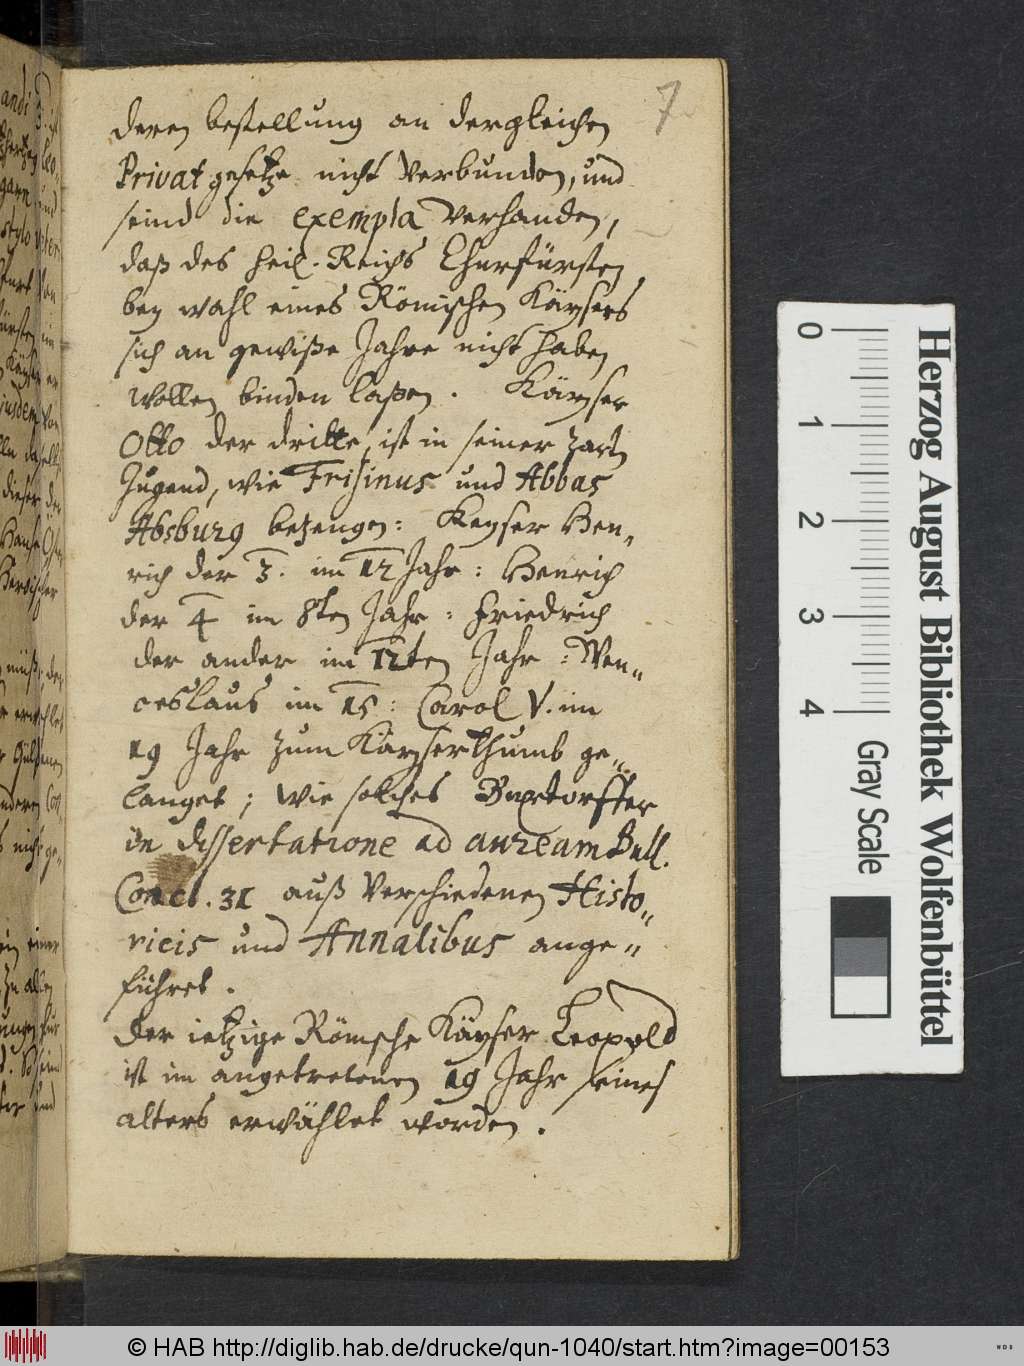 7
deren bestellung an dergleichen
Privatgesetze nicht verbunden, und
seind die exempla verhanden,
daß des Heil. Reichs Churfürsten
bey wahl eines Römischen Käysers
sich an gewiße Jahre nicht haben
wollen binden laßen. Käyser
Otto der dritte, ist in seiner zarten
Jugend, wie Frisinus und Abbas
Absburg bezeugen: Keyser Hen„
rich der 3. im 12 Jahr: Henrich
der 4 im 8ten Jahr: Friedrich
der ander im 12ten Jahr: Wen„
ceslaus im 15: Carol V. im
19 Jahr zum Käyserthumb ge„
langet; wie solches Buxtorffer
in dissertatione ad auream Bull.
Concl. 31 auß verschiedenen Histo„
ricis und Annalibus ange„
führet.
Der ietzige Römsche Käyser Leopold
ist im angetretenen 19 Jahr seines
alters erwählet worden.
0 1 2 3 4
Gray Scale
Herzog August Bibliothek Wolfenbüttel
© HAB http://diglib.hab.de/drucke/qun-1040/start.htm?image=00153